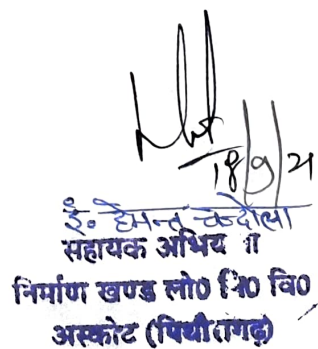 18/9/21
इं० हेमन्त चन्दोला
सहायक अभिय ा
निर्माण खण्ड लो० नि० वि०
अस्कोट (पिथौरागढ़)